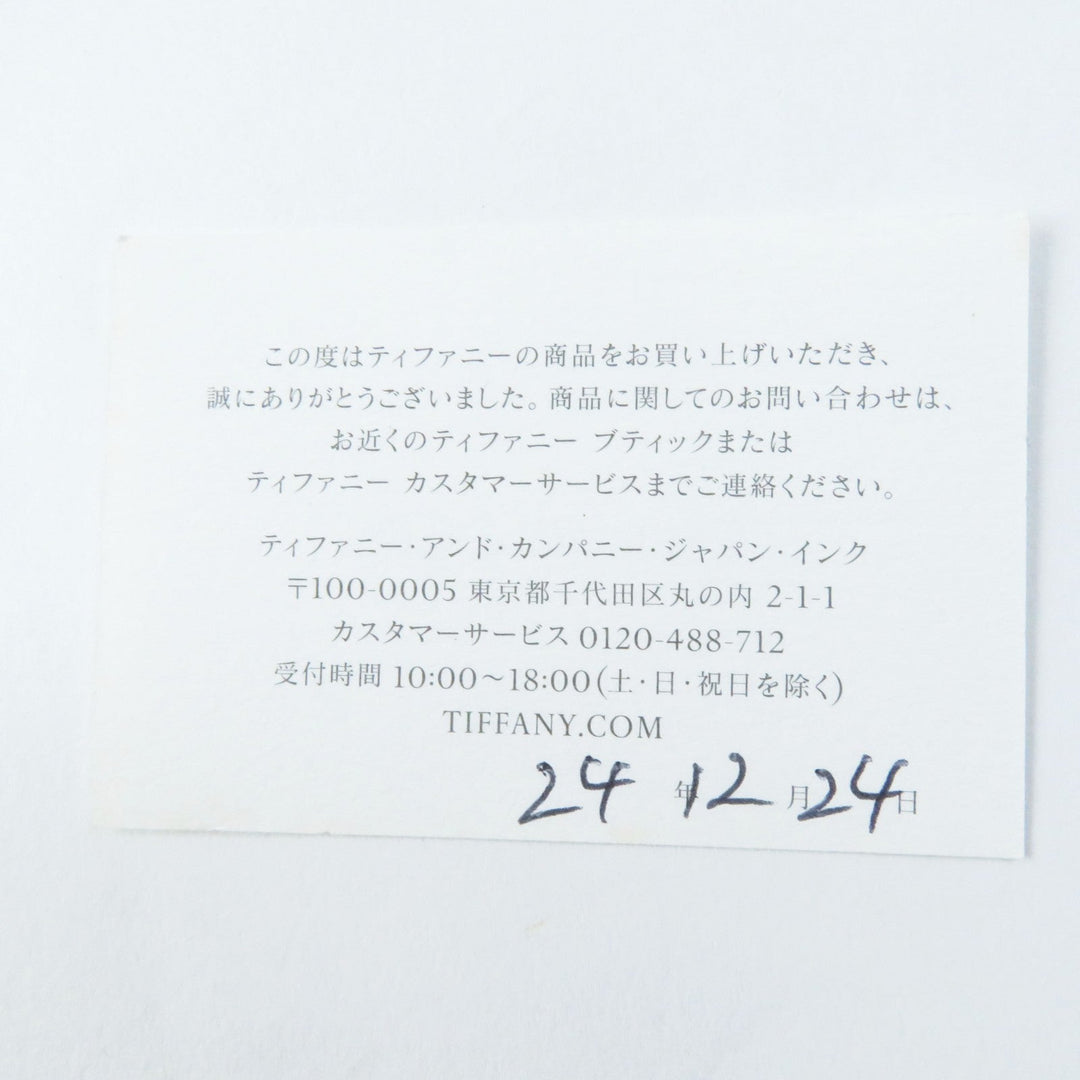 この度はティファニーの商品をお買い上げいただき、
誠にありがとうございました。商品に関してのお問い合わせは、
お近くのティファニー ブティックまたは
ティファニー カスタマーサービスまでご連絡ください。
ティファニー・アンド・カンパニー・ジャパン・インク
〒100-0005 東京都千代田区丸の内 2-1-1
カスタマーサービス 0120-488-712
受付時間 10:00～18:00(土・日・祝日を除く)
TIFFANY.COM
24 年 12 月 24 日